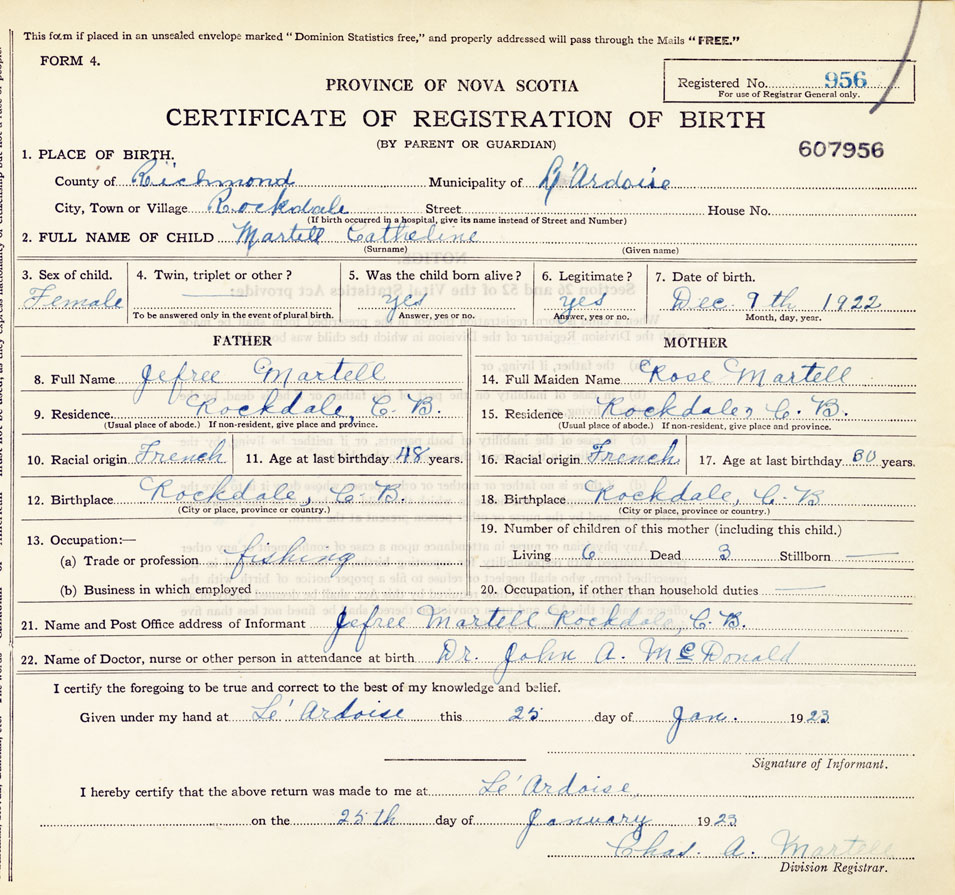 This form if placed in an unsealed envelope marked "Dominion Statistics free," and properly addressed will pass through the Mails "FREE."
FORM 4.
PROVINCE OF NOVA SCOTIA
Registered No. 956
For use of Registrar General only.
CERTIFICATE OF REGISTRATION OF BIRTH
(BY PARENT OR GUARDIAN)
607956
1. PLACE OF BIRTH.
County of Richmond Municipality of L'Ardoise
City, Town or Village Rockdale Street House No.
(If birth occurred in a hospital, give its name instead of Street and Number)
2. FULL NAME OF CHILD Martell Catheline
(Surname) (Given name)
3. Sex of child. 4. Twin, triplet or other? 5. Was the child born alive? 6. Legitimate? 7. Date of birth.
Female yes yes Dec. 9th 1922
To be answered only in the event of plural birth. Answer, yes or no. Answer, yes or no. Month, day, year.
FATHER MOTHER
8. Full Name Jefree Martell 14. Full Maiden Name Rose Martell
9. Residence Rockdale, C. B. 15. Residence Rockdale, C. B.
(Usual place of abode.) If non-resident, give place and province. (Usual place of abode.) If non-resident, give place and province.
10. Racial origin French 11. Age at last birthday 48 years. 16. Racial origin French 17. Age at last birthday 30 years.
12. Birthplace Rockdale, C. B. 18. Birthplace Rockdale, C. B
(City or place, province or country.) (City or place, province or country.)
13. Occupation:— 19. Number of children of this mother (including this child.)
(a) Trade or profession fishing Living 6 Dead 3 Stillborn
(b) Business in which employed 20. Occupation, if other than household duties
21. Name and Post Office address of Informant Jefree Martell Rockdale, C. B.
22. Name of Doctor, nurse or other person in attendance at birth Dr. John A. McDonald
I certify the foregoing to be true and correct to the best of my knowledge and belief.
Given under my hand at Le' Ardoise this 25 day of Jan. 1923
Signature of Informant.
I hereby certify that the above return was made to me at Le' Ardoise,
on the 25th day of January 1923
Chas. A. Martell
Division Registrar.